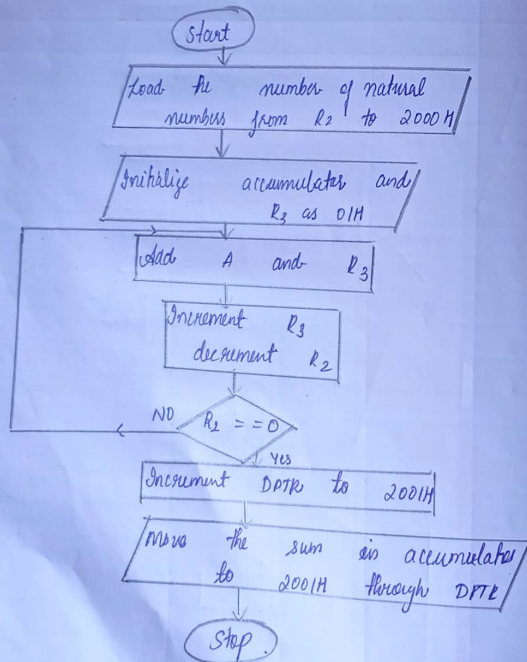 Start
Load the number of natural
numbers from R2 to 2000 H
Initialize accumulator and
R3 as 01H
Add A and R3
Increment R3
decrement R2
NO
R2 = = 0
Yes
Increment DPTR to 2001H
Move the sum in accumulator
to 2001H through DPTR
Stop